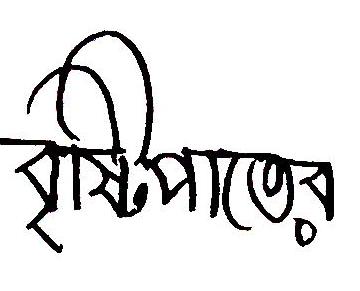 বৃষ্টিপাতের